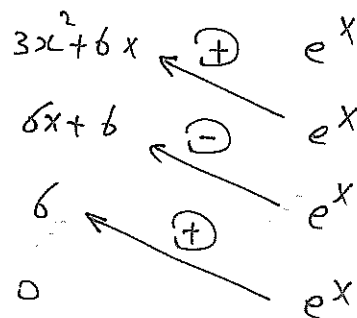 3x²+6x ⊕ e^x
e^x
6x+6 ⊖
e^x
6 ⊕
0 e^x